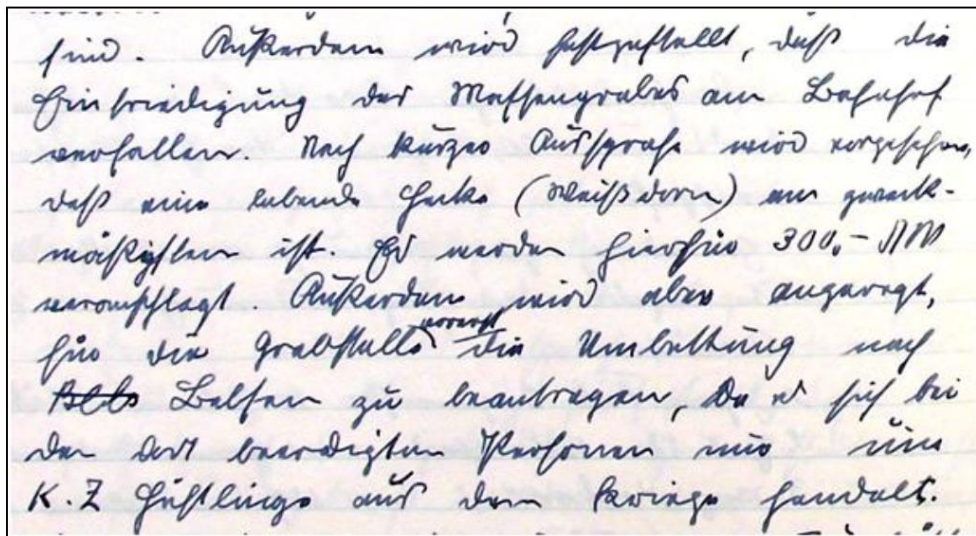 sind. Außerdem wird festgestellt, daß die
Einfriedigung des Massengrabes am Bahnhof
verfallen. Nach kurzer Aussprache wird vorgesehen,
daß eine lebende Hecke (Weißdorn) am zweck-
mäßigsten ist. Es werden hierfür 300,- RM
veranschlagt Außerdem wird aber angeregt,
für die Grabstelle vorerst die Umbettung nach
Belsen zu beantragen, da es sich bei
den dort beerdigten Personen nur um
K.Z Häftlinge aus dem Kriege handelt.